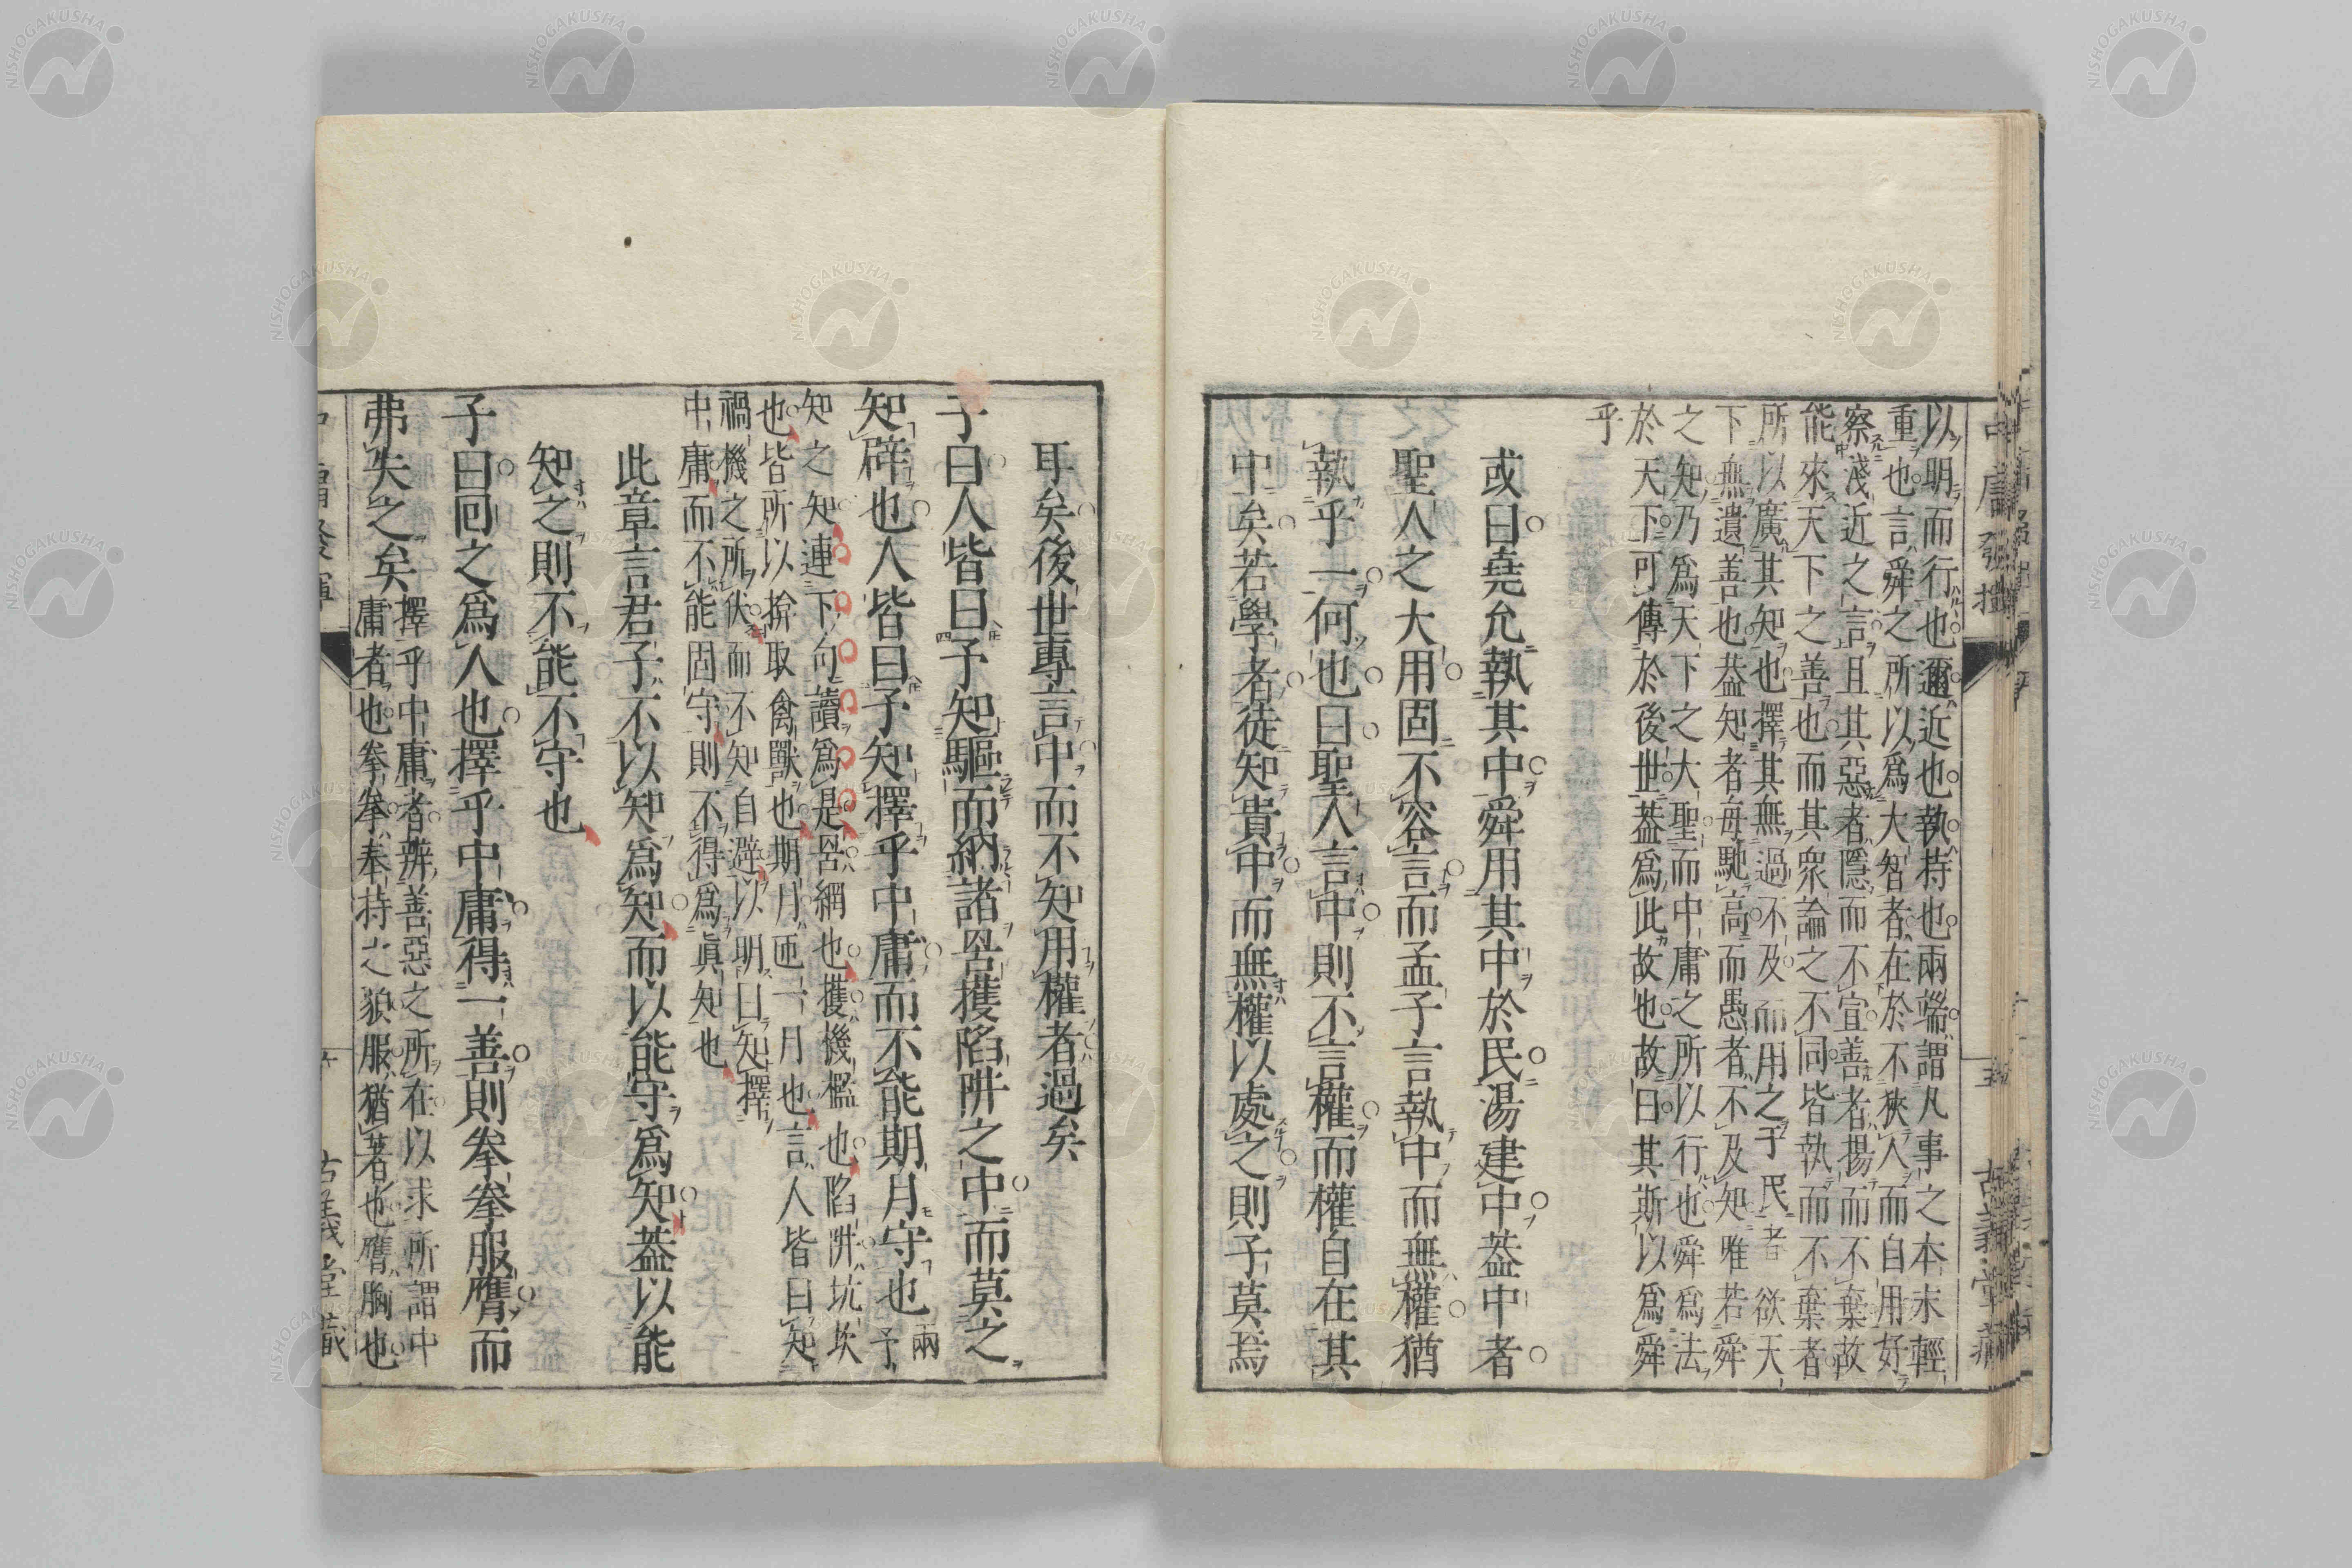 以明而行也邇近也執持也兩端謂凡事之本末輕
重也言舜之所以爲大智者在於不狹人而自用好
察淺近之言且其惡者隱而不宣善者揚而不棄故
能來天下之善也而其衆論之不同皆執而不棄者
所以廣其知也擇其無過不及而用之于民者欲天
下無遺善也葢知者每馳高而愚者不及知唯若舜
之知乃爲天下之大聖而中庸之所以行也舜爲法
於天下可傳於後世葢爲此故也故曰其斯以爲舜
乎
或曰堯允執其中舜用其中於民湯建中葢中者
聖人之大用固不容言而孟子言執中而無權猶
執乎一何也曰聖人言中則不言權而權自在其
中矣若學者徒知貴中而無權以處之則子莫焉
中庸發揮
五
古義堂藏
耳矣後世專言中而不知用權者過矣
子曰人皆曰予知驅而納諸罟擭陷阱之中而莫之
知辟也人皆曰予知擇乎中庸而不能期月守也兩予
知之知連下句讀爲是罟網也擭機檻也陷阱坑坎
也皆所以揜取禽獸也期月匝一月也言人皆曰知
禍機之所伏而不知自避以明曰知擇
中庸而不能固守則不得爲眞知也
此章言君子不以知爲知而以能守爲知葢以能
知之則不能不守也
子曰回之爲人也擇乎中庸得一善則拳拳服膺而
弗失之矣擇乎中庸者辨善惡之所在以求所謂中
庸者也拳拳奉持之貌服猶著也膺胸也
古義堂藏